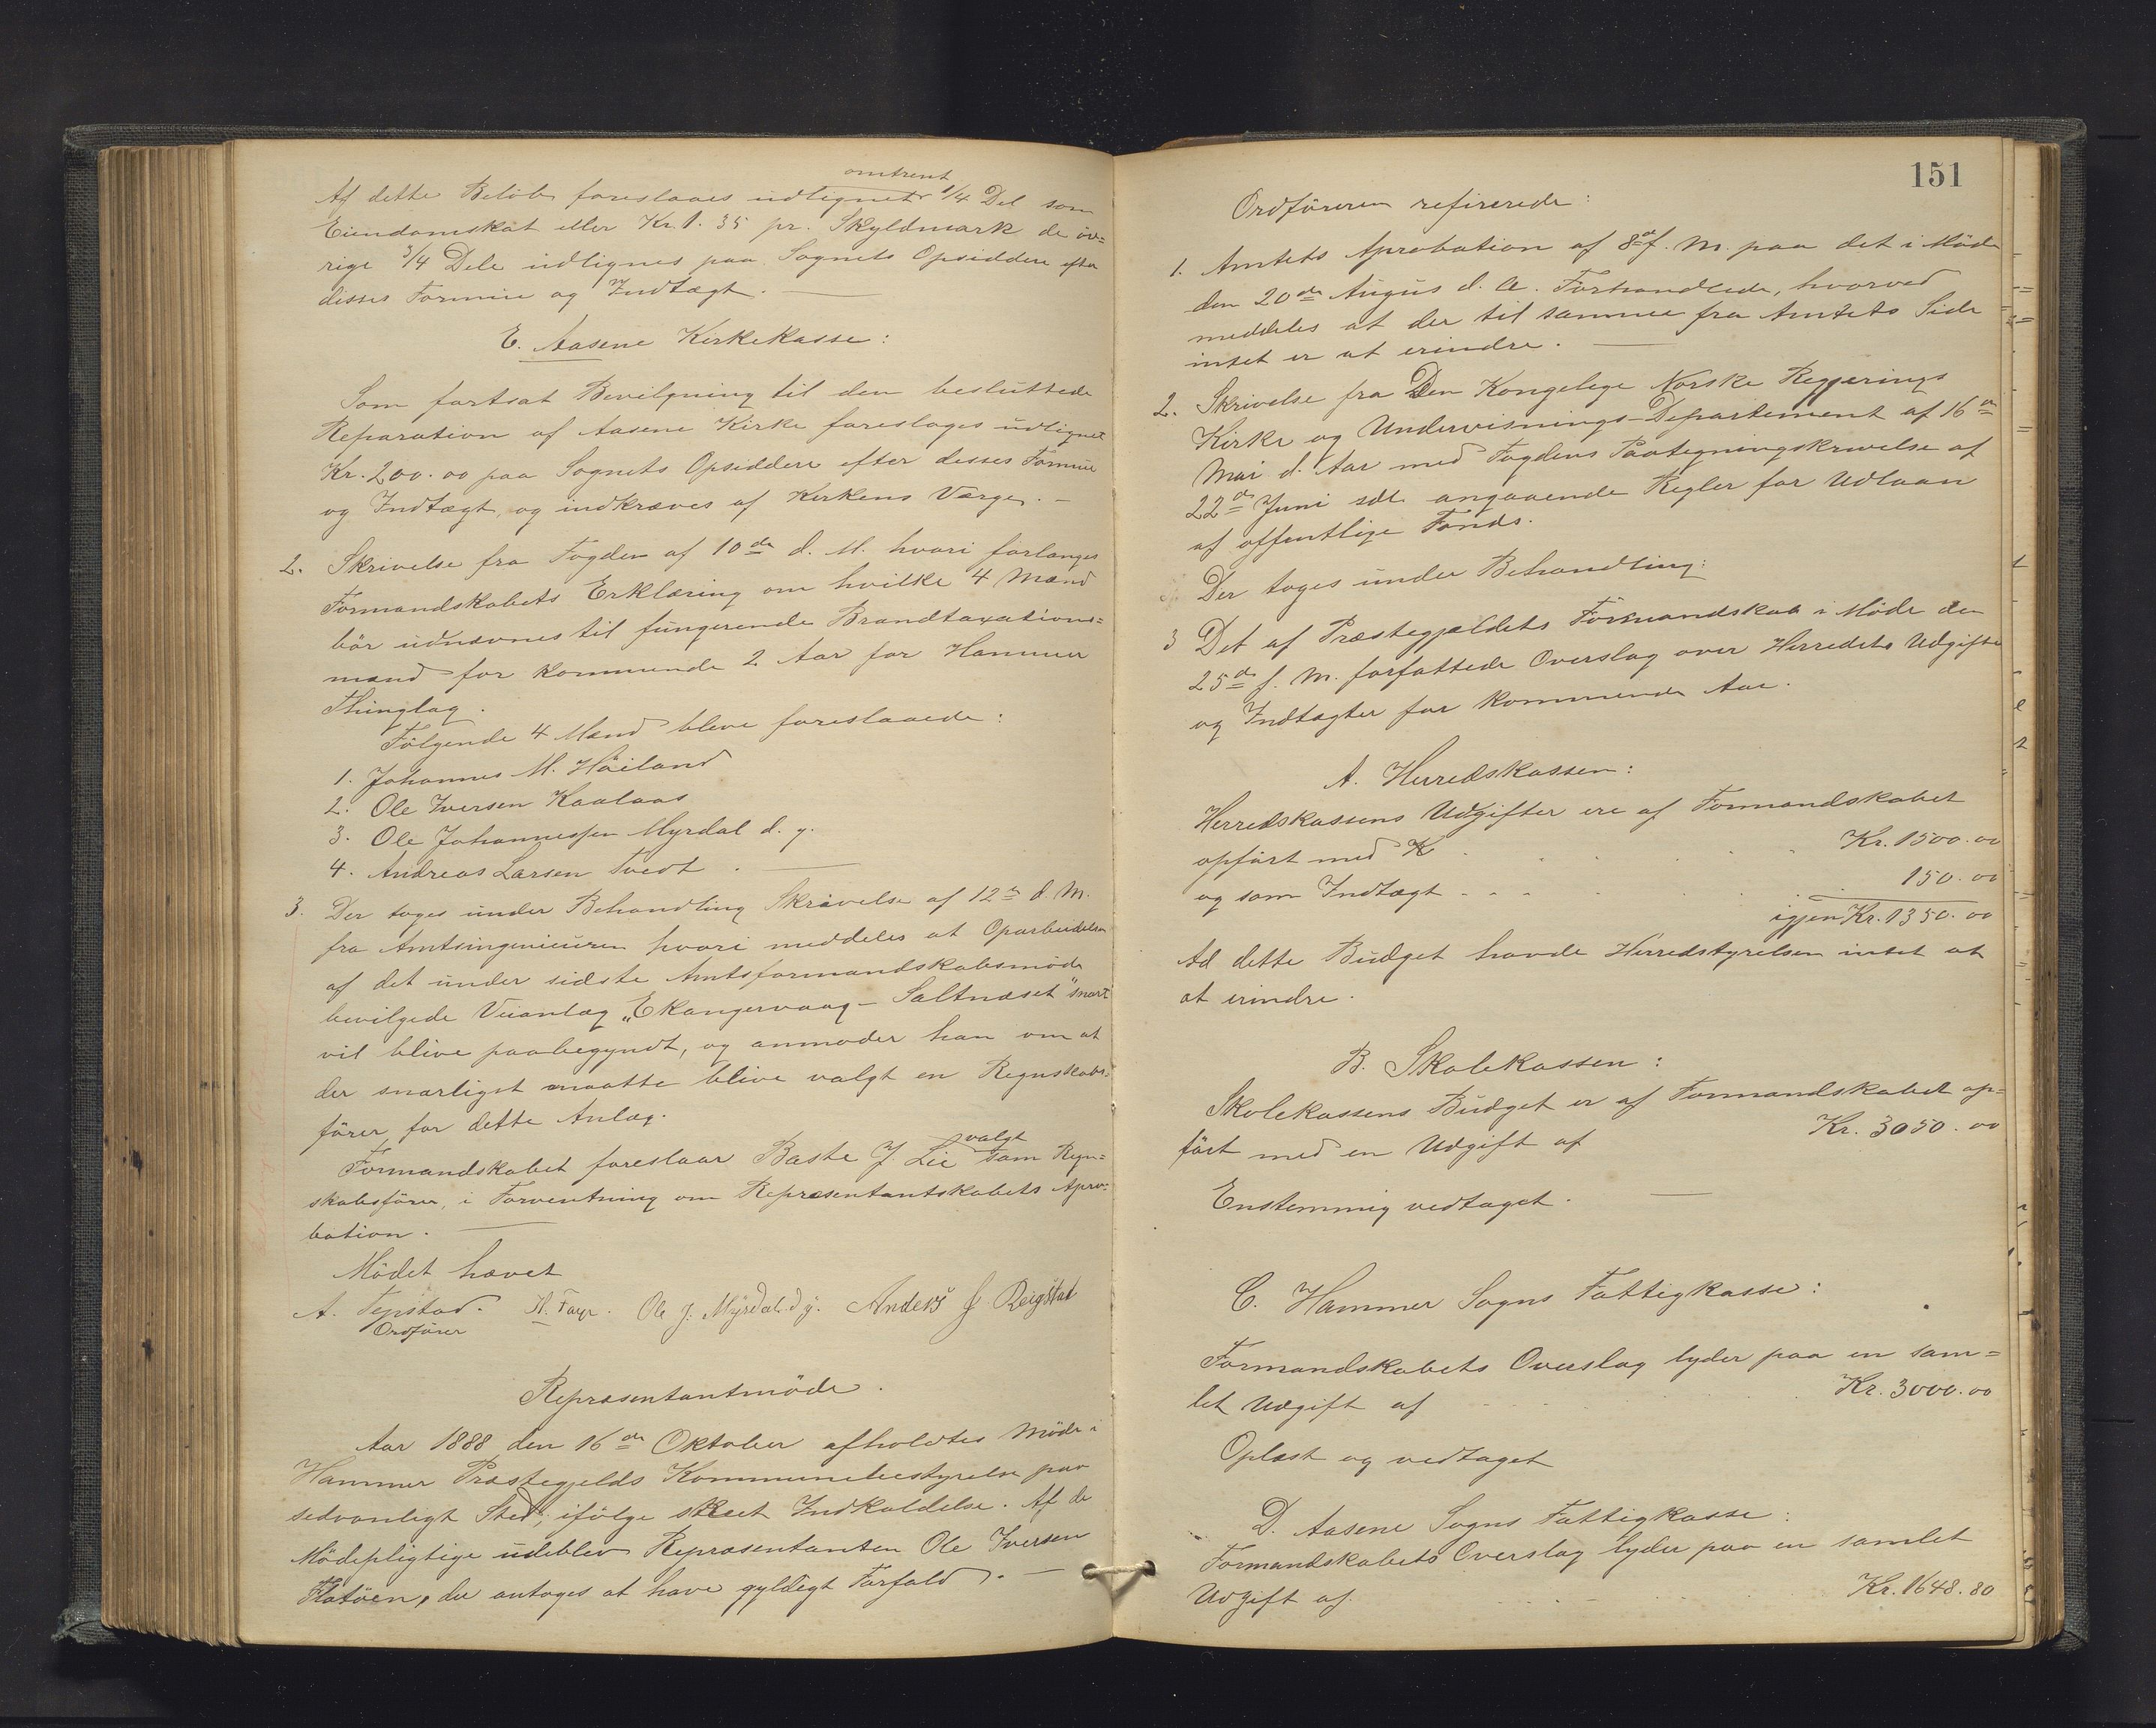 omtrent
Af dette Beløb foreslaaes udlignet 1/4 Del som
Eiendomskat eller Kr. 1. 35 pr. Skyldmark de öv=
rige 3/4 Dele udlignes paa Sognets Opsiddere efter
disses Formue og Indtægt.
E. Aasene Kirkekasse:
Som fortsat Bevilgning til den besluttede
Reparation af Aasene Kirke foreslages udlignet
Kr. 200.00 paa Sognets Opsiddere efter desses Formue
og Indtægt, og indkræves af Kirkens Værge. —
2. Skrivelse fra Fogden af 10de d. M. hvori forlanges
Formandskabets Erklæring om hvilke 4 Mænd
bör udnævnes til fungerende Brandtaxations=
mænd for kommende 2 Aar for Hammer
Thinglag.
Fölgende 4 Mænd bleve foreslaaede:
1. Johannes M. Höiland
2. Ole Iversen Kaalaas
3. Ole Johannessen Myrdal d. y.
4. Andreas Larsen Tvedt.
3. Der toges under Behandling Skrivelse af 12te d. M.
fra Amtsingeniøren hvori meddeles at Oparbeidelsen
af det under sidste Amtsformandskabsmöde
bevilgede Veianlæg „Ekangervaag – Saltnæset" snart
vil blive paabegyndt, og anmoder han om at
der snarligst maatte blive valgt en Regnskabs=
förer for dette Anlæg.
valgt
Formandskabet foreslaar Baste J Lie som Regn=
skabsförer, i Forventning om Repræsentantskabets Apro=
bation.
Mödet hævet
A. Tepstad. H. Faye. Ole J. Myrdal. d y. Anders J. Reigstad
Ordförer
Repræsentantmöde.
Aar 1888 den 16de Oktober afholdtes Möde i
Hammer Præstegjelds Kommunebestyrelse paa
sedvanligt Sted, ifölge skeet Indkaldelse. Af de
Mödepligtige udeblev Repræsentanten Ole Iversen
Flatöen, der antoges at have gyldigt Forfald. —
151
Ordföreren refirerede:
1. Amtets Aprobation af 8de f. M. paa det i Möde
den 20de Augus d. A. Forhandlede, hvorved
meddeles at der til samme fra Amtets Side
intet er at erindre.
2. Skrivelse fra Den Kongelige Norske Regjerings
Kirke og Undervisnings-Departement af 16de
Mai d. Aar med Fogdens Paategningskrivelse af
22de Juni sdl. angaaende Regler for Udlaan
af offentlige Fonds.
Der toges under Behandling:
3 Det af Præstegjældets Formandskab i Möde den
25de f. M. forfattede Overslag over Herredets Udgifter
og Indtægter for kommende Aar.
A. Herredskassen:
Herredskassens Udgifter ere af Formandskabet
opfört med K Kr. 1500.00
og som Indtægt 150.00
igjen Kr. 1350.00
Ad dette Budget havde Herredstyrelsen intet at
at erindre.
B. Skolekassen:
Skolekassens Budget er af Formandskabet op=
fört med en Udgift af Kr. 3050.00
Enstemmig vedtaget.
C. Hammer Sogns Fattigkasse:
Formandskabets Overslag lyder paa en sam=
let Udgift af Kr. 3000.00
Oplæst og vedtaget
D. Aasene Sogns Fattigkasse:
Formandskabets Overslag lyder paa en samlet
Udgift af Kr. 1648.80